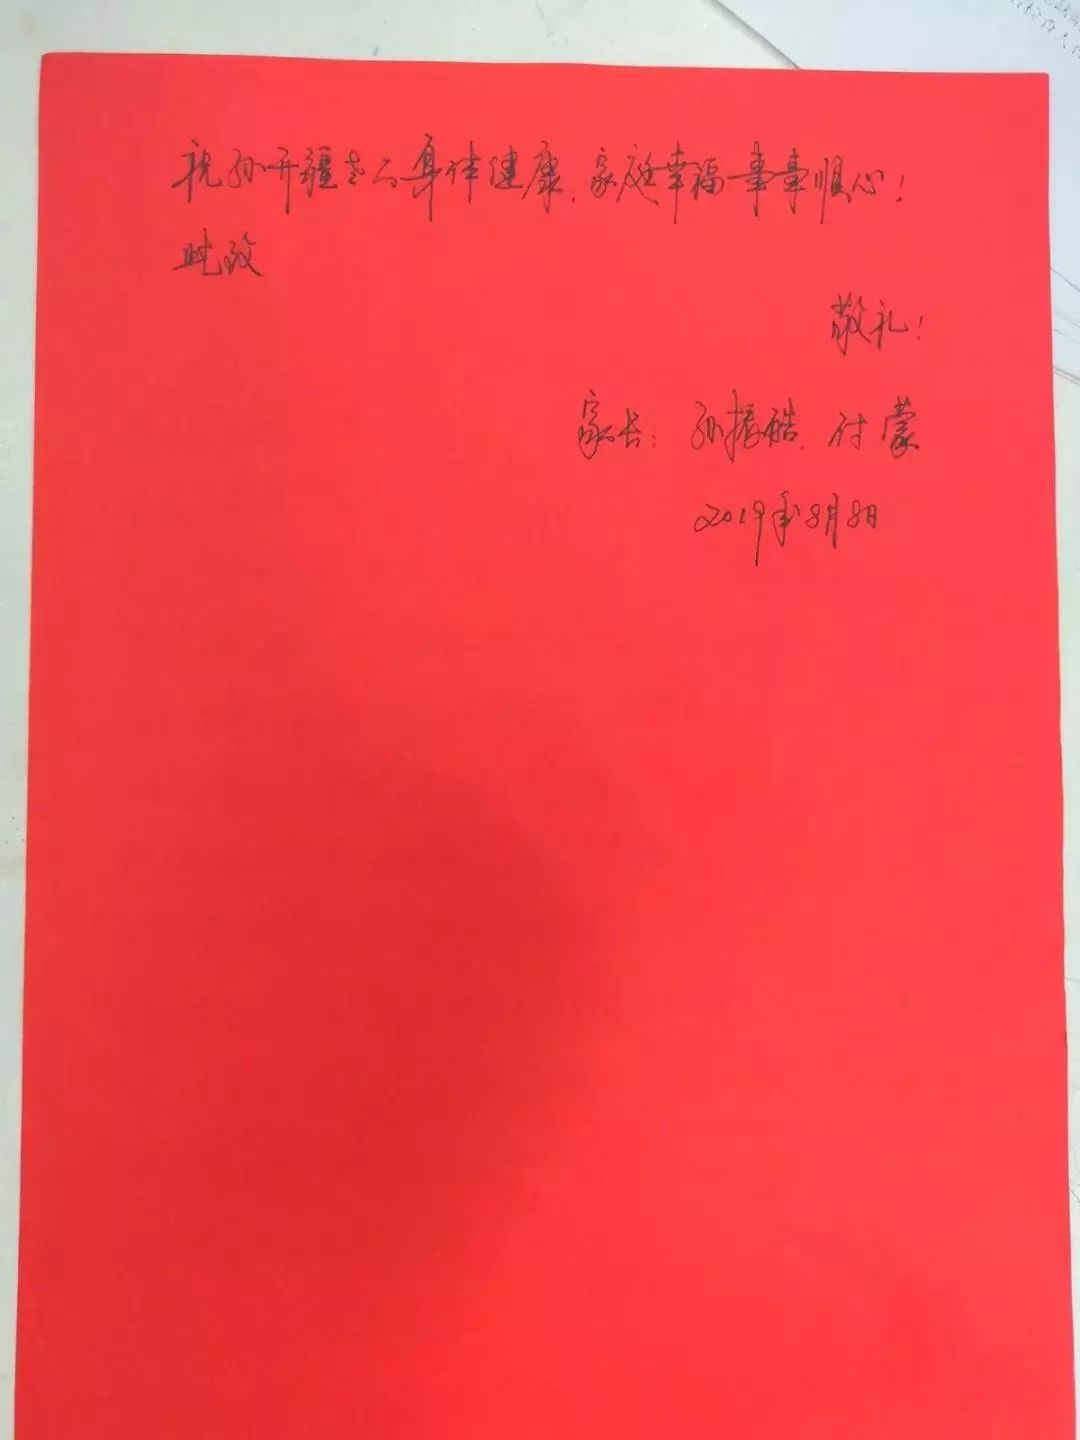 祝孙开疆老师身体健康、家庭幸福事事顺心!
此致
敬礼!
家长: 孙振皓、付蒙
2019年8月8日